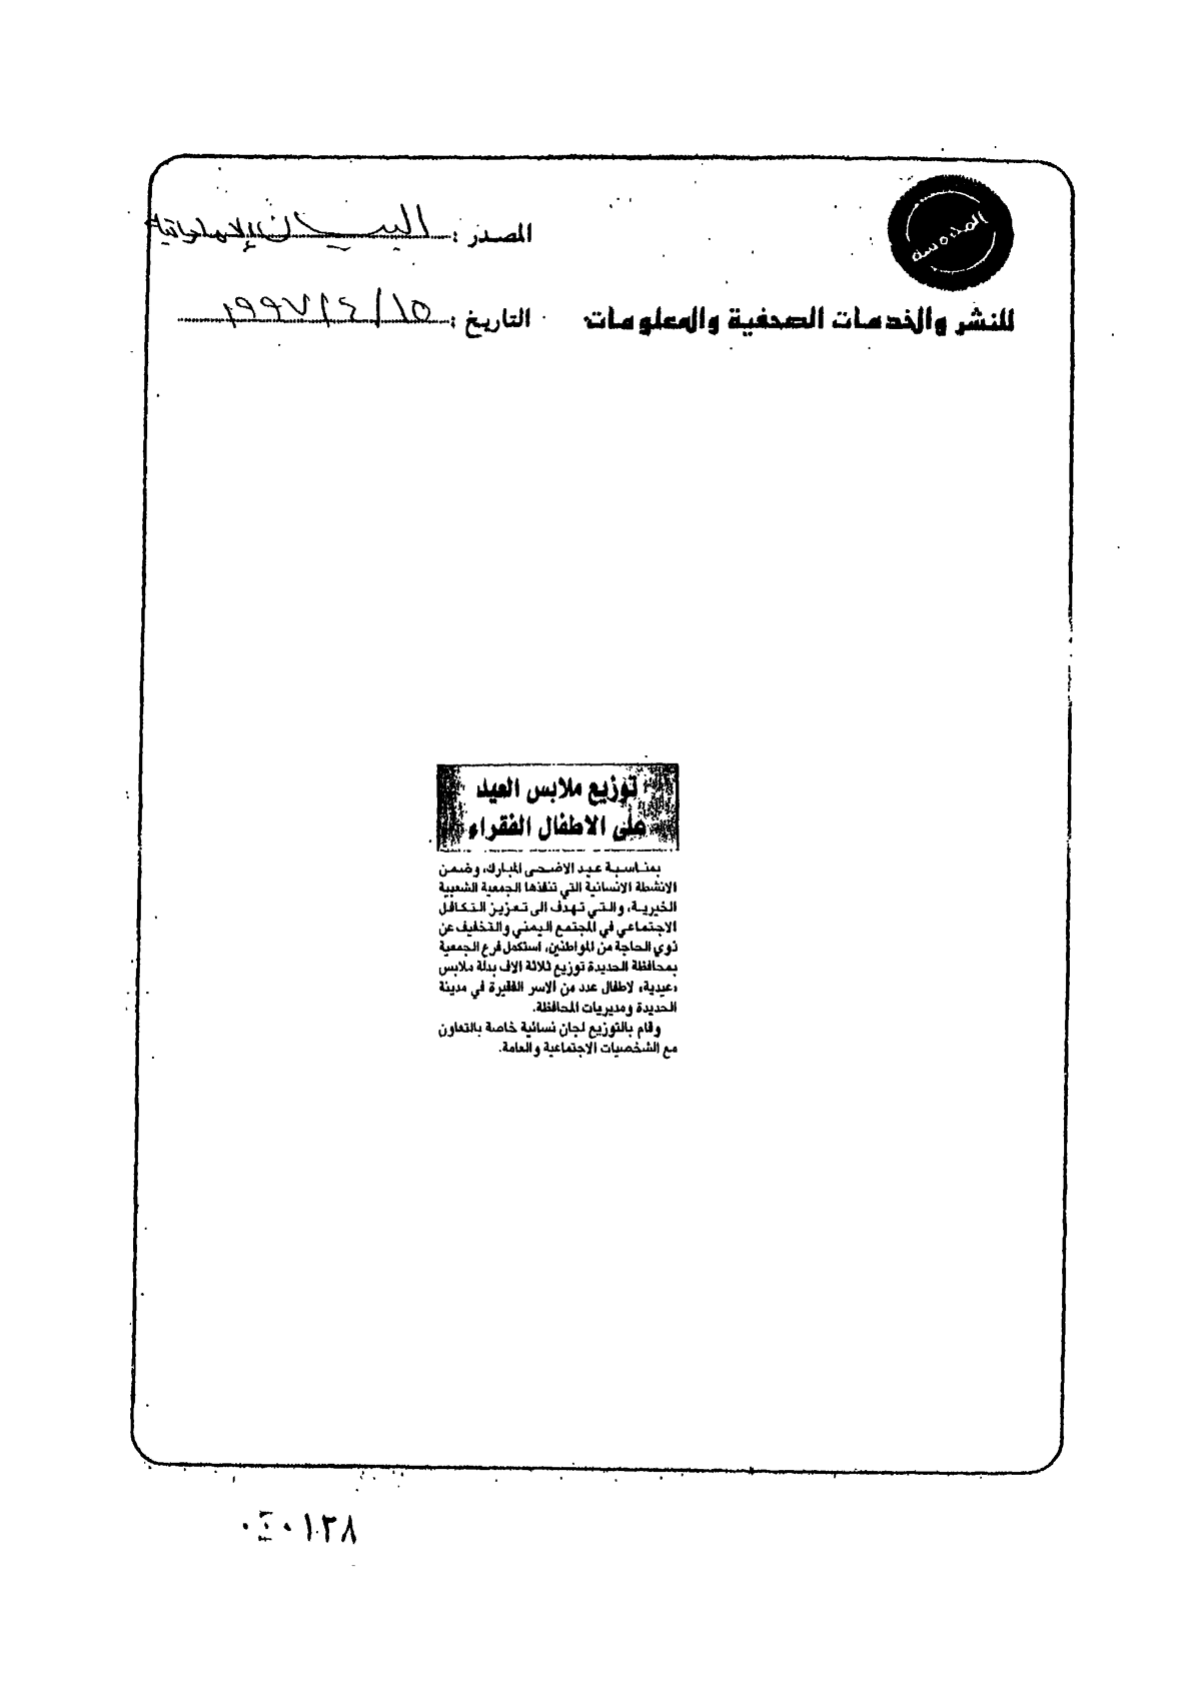 المدوسة
المصدر : البيان الإماراتية
للنشر والخدمات الصحفية والمعلومات
التاريخ : ١٥/٤/١٩٩٧
توزيع ملابس العيد
على الاطفال الفقراء
بمناسبة عيد الاضحى المبارك، وضمن
الانشطة الانسانية التي تنفذها الجمعية الشعبية
الخيرية، والتي تهدف الى تعزيز التكافل
الاجتماعي في المجتمع اليمني والتخفيف عن
ذوي الحاجة من المواطنين، استكمل فرع الجمعية
بمحافظة الحديدة توزيع ثلاثة الاف بدلة ملابس
«عيدية» لاطفال عدد من الاسر الفقيرة في مدينة
الحديدة ومديريات المحافظة.
وقام بالتوزيع لجان نسائية خاصة بالتعاون
مع الشخصيات الاجتماعية والعامة.